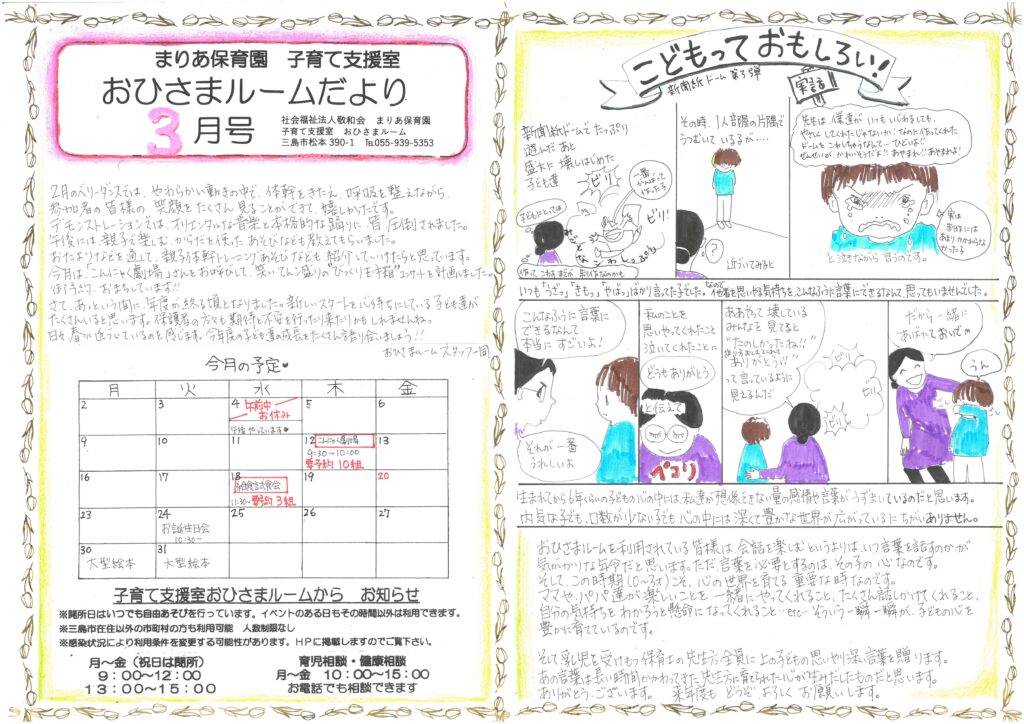 まりあ保育園　子育て支援室
おひさまルームだより
3月号
社会福祉法人敬和会　まりあ保育園
子育て支援室　おひさまルーム
三島市松本 390-1　℡055-939-5353
2月のベリーダンスでは、やわらかい動きの中で、体幹をきたえ、呼吸を整えながら、
参加者の皆様の 笑顔をたくさん見ることができて、嬉しかったです。
デモンストレーションでは、オリエンタルな音楽と本格的な踊りに 皆 圧倒されました。
午後には、親子で楽しむ、からだを使った あそびなども教えてもらいました。
おたよりなどを通して、親子体幹トレーニングあそびなども 紹介していけたらと思っています。
今月は、"こんにゃく劇場"さんをお呼びして、笑いてんこ盛りの"びっくり玉手箱"コンサートを計画しました。
ぜひ おまちしています!!
さて、あっという間に年度が終る頃となりました。新しいスタートを心待ちにしている子ども達が
たくさんいると思います。保護者の方々も期待と不安を行ったり来たりかもしれませんねっ
日々春に近づいているのを感じます。今年度の子ども達の成長をたくさん語り合いましょう!!
おひさまルーム スタッフ一同
今月の予定
月 火 水 木 金
2 3 4 午前中お休み 5 6
午後 やっています
9 10 11 12 こんにゃく劇場 13
9:30~10:00
要予約 10組
16 17 18 給食試食会 19 20
11:30~ 要予約 3組
23 24 25 26 27
お誕生日会
10:30~
30 31
大型絵本 大型絵本
子育て支援室おひさまルームから　お知らせ
※開所日はいつでも自由あそびを行っています。イベントのある日もその時間以外は利用できます。
※三島市在住以外の市町村の方も利用可能　人数制限なし
※感染状況により利用条件を変更する可能性があります。ＨＰに掲載しますのでご覧下さい。
月～金（祝日は閉所）
９：００～１２：００
１３：００～１５：００
育児相談・健康相談
月～金　１０：００～１５：００
お電話でも相談できます
こどもっておもしろい!
新聞紙ドーム 第3弾
実話
新聞紙ドームでたっぷり
遊んだあと
盛大に 壊しはじめた
子ども達
ビリ
一番かばって作った子
ビリ!
子どもにとっては
作って こわす までが 制作なのかも
その時、1人部屋の片隅で
うつむいているが・・・・
?
近づいてみると
先生は、僕達が いつも いじわるしても、
やさしくしてくれたじゃないか! なのに 作ってくれた
ドームを こわしちゃうなんて… ひどいよ!!
せんせいが、かわいそうだよ!! あやまれ! あやまれよ!
実は
制作には
あまり かかわらなかった子
と泣きながら 言うのです。
いつも「うざっ」「きもっ」「やばっ」ばかり言ってた子でした。なので他者を思いやる気持ちを、こんなふうに言葉にできるなんて、思ってもいませんでした。
こんなふうに言葉に
できるなんて
本当に すごいよ!
それが一番
うれしいよ
私のことを
思いやってくれたこと
泣いてくれたことに
どうもありがとう
と伝えて
ペコリ
ああやって 壊している
みんなを見ると
"たのしかったね!!"
ありがとう!!"
って言っているように
見えるんだ
ビリ
ビリ
ビリ
だから 一緒に
あばれておいでの
うん
生まれてから6年くらいの子どもの心の中には、私達が想像できない量の感情や言葉がうずまいているのだと思います。
内気な子でも、口数が少ない子でも 心の中には 深くて 豊かな世界が 広がっているにちがいありません。
おひさまルームを利用されている 皆様は、会話を楽しむというよりは、いつ言葉を話すのかが
気がかりな年令だと思います。ただ、言葉を必要とするのは、その子の 心なのです。
そして、この時期（0～3才）こそ、心の世界を育てる 重要な時なのです。
ママや、パパ達が、楽しいことを 一緒に やってくれること、たくさん話しかけてくれること、
自分の気持ちを わかろうと懸命になってくれること…etc… そういう一瞬一瞬が、子どもの心を
豊かに育てているのです。
そして乳児を受けもつ保育士の先生方全員に 上の子どもの思いやり深い言葉を贈ります。
あの言葉は長い時間かかわってきた先生方に育てられた心が生みだしたものだと思います。
ありがとうございます。　来年度も どうぞ よろしく お願いします。